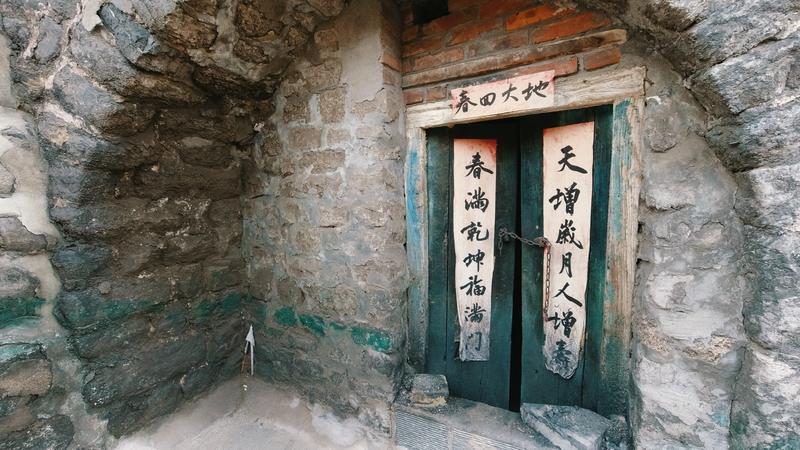 春回大地
天增歲月人增寿
春满乾坤福满门